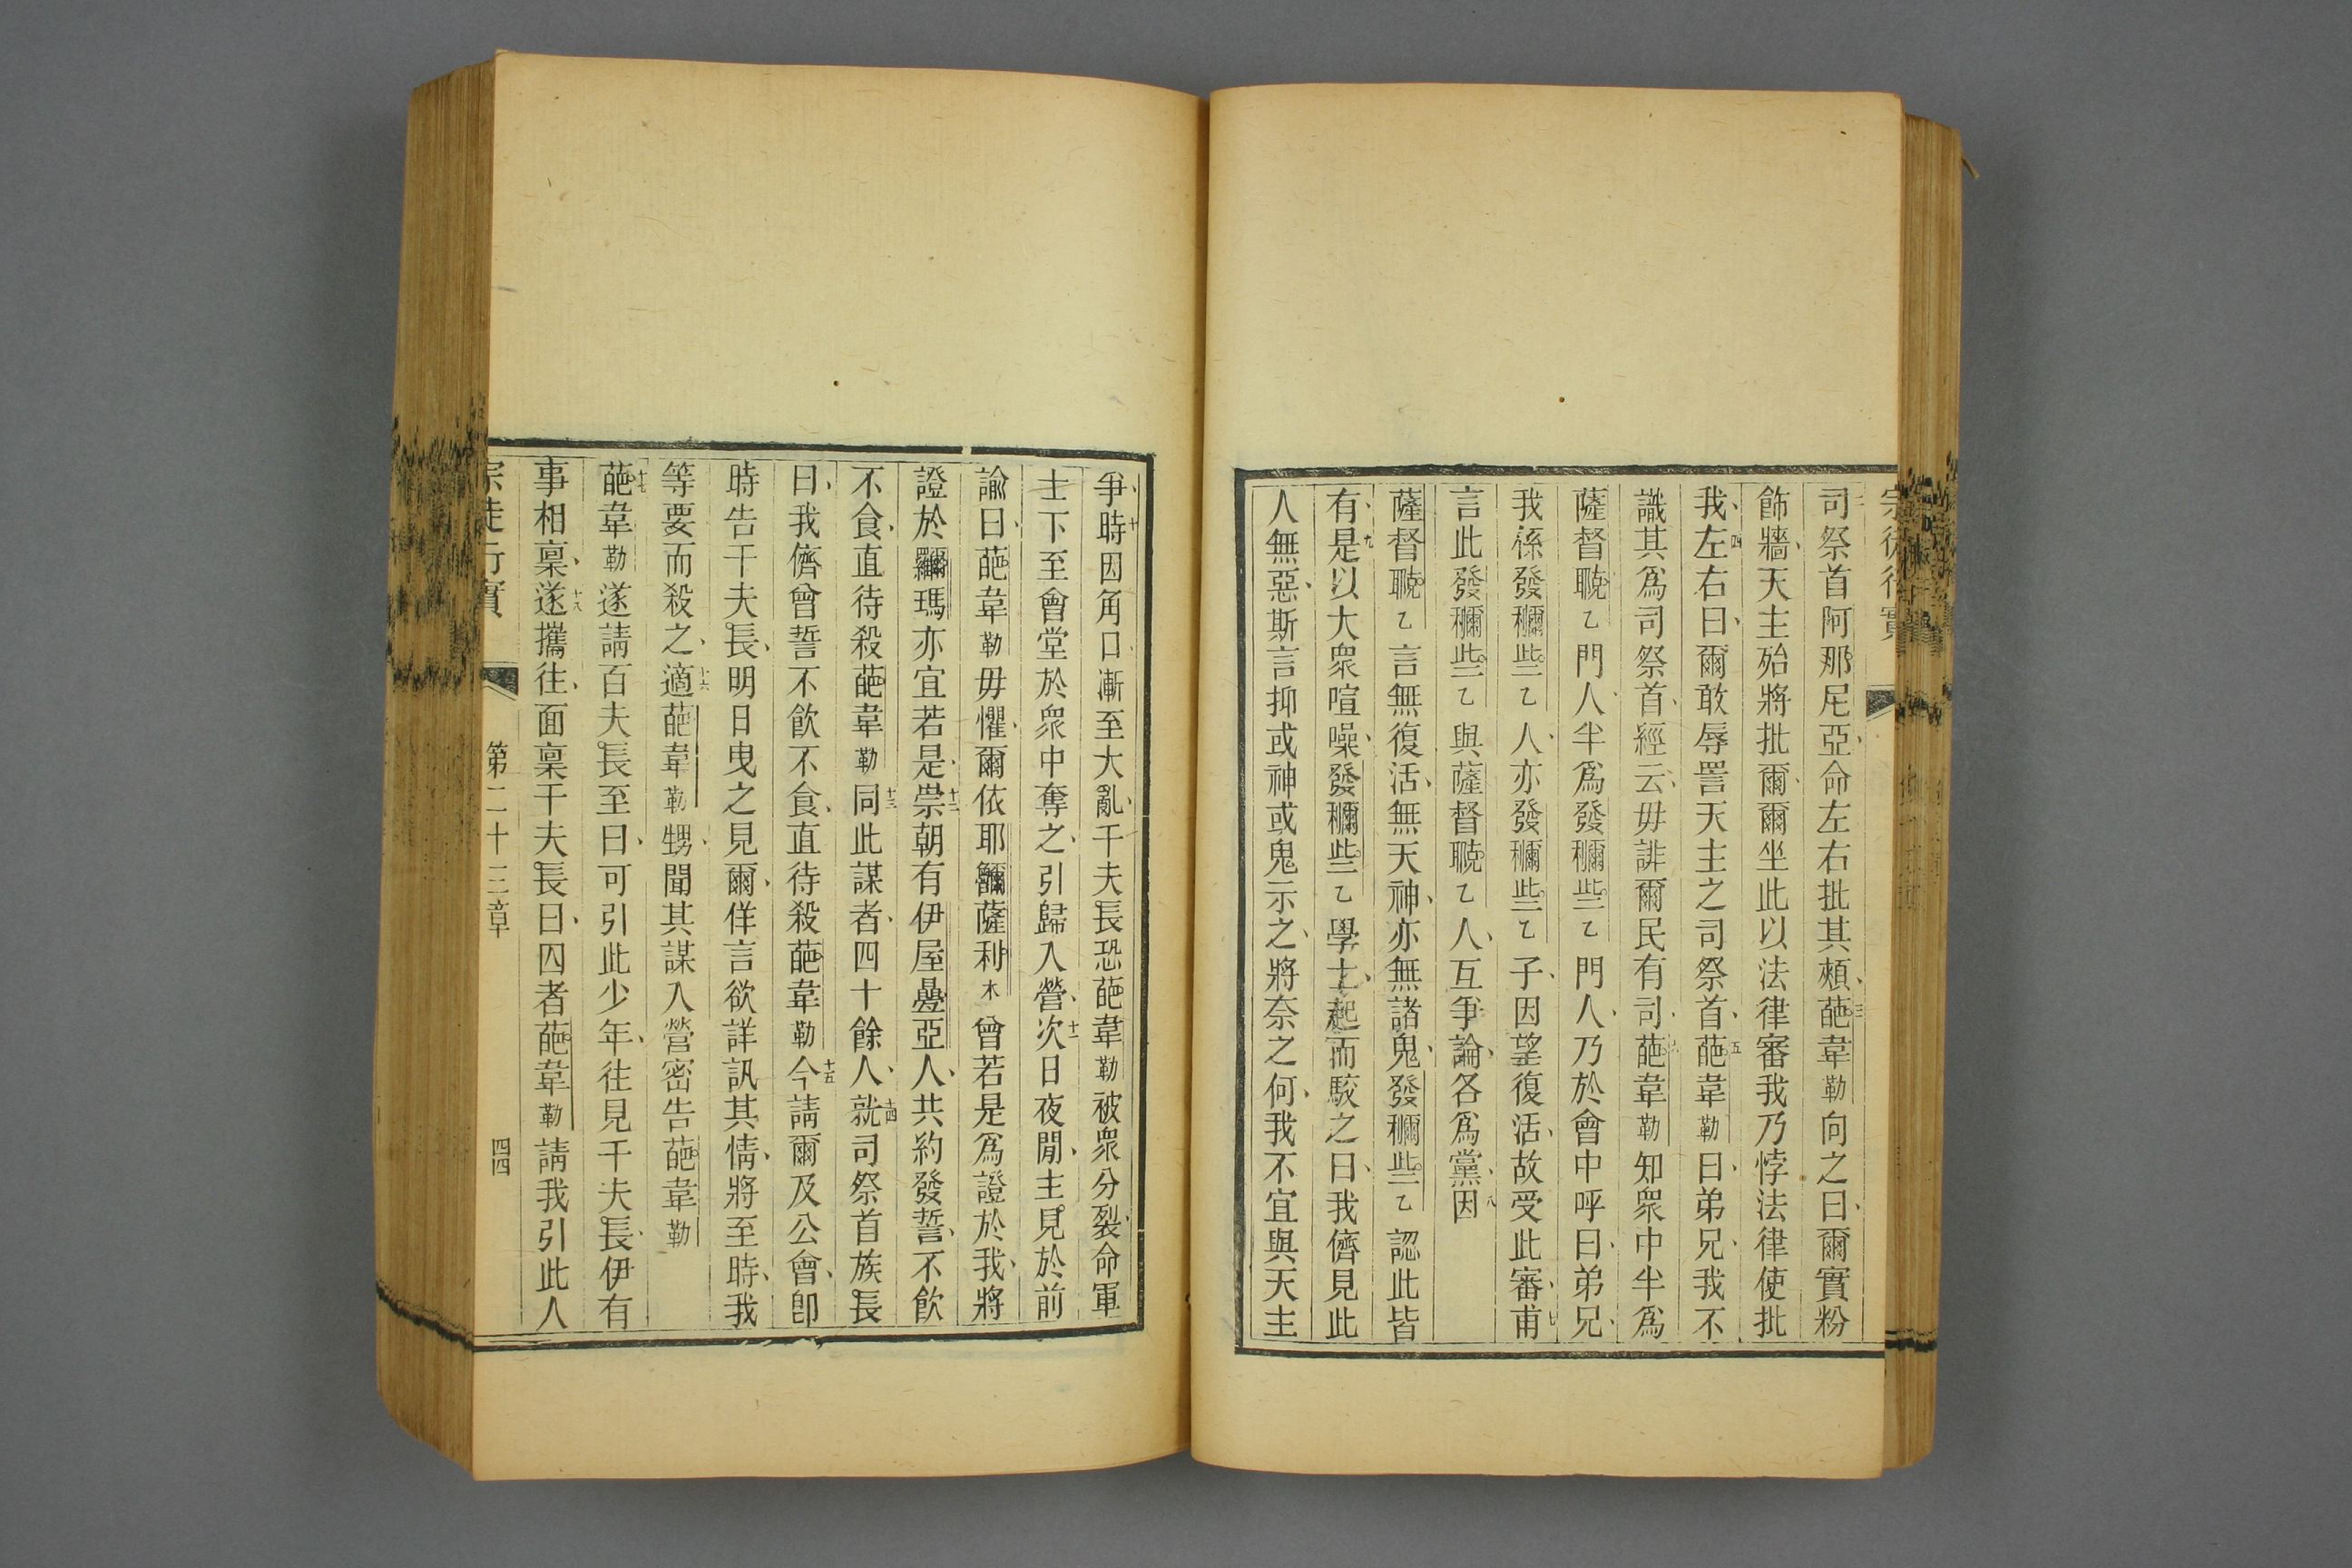 宗徒行實
司祭首阿那尼亞命左右批其頰三葩韋勒向之曰爾實粉
飾牆天主殆將批爾爾坐此以法律審我乃悖法律使批
我四左右曰爾敢辱詈天主之司祭首五葩韋勒曰弟兄我不
識其爲司祭首經云毋誹爾民有司六葩韋勒知衆中半爲
薩督𦗟乙門人半爲發穪些乙門人乃於會中呼曰弟兄
我係發穪些乙人亦發穪些乙子因望復活故受此審七甫
言此發穪些乙與薩督𦗟乙人互爭論各爲黨八因
薩督𦗟乙言無復活無天神亦無諸鬼發穪些乙認此皆
有九是以大衆喧噪發穪些乙學士起而駮之曰我儕見此
人無惡斯言抑或神或鬼示之將奈之何我不宜與天主
爭十時因角口漸至大亂千夫長恐葩韋勒被衆分裂命軍
士下至會堂於衆中奪之引歸入營十一次日夜閒主見於前
諭曰葩韋勒毋懼爾依耶薩利木曾若是爲證於我將
證於瑪亦宜若是十二崇朝有伊屋疊亞人共約發誓不飲
不食直待殺葩韋勒十三同此謀者四十餘人十四就司祭首族長
曰我儕曾誓不飲不食直待殺葩韋勒十五今請爾及公會卽
時告千夫長明日曳之見爾佯言欲詳訊其情將至時我
等要而殺之十六適葩韋勒甥聞其謀入營密告葩韋勒
十七葩韋勒遂請百夫長至曰可引此少年往見千夫長伊有
事相稟十八遂攜往面稟千夫長曰囚者葩韋勒請我引此人
宗徒行實 第二十三章 四四